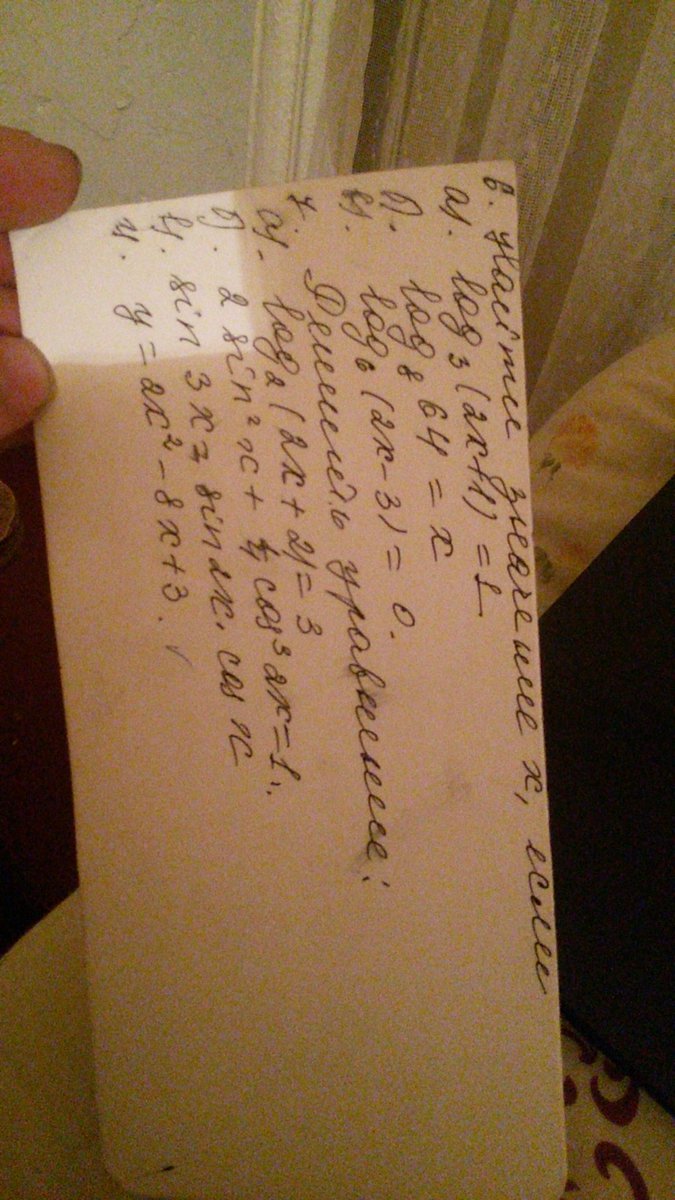 6. Найти значение x, если
а). log₃(2x+1) = 1
б). log₈ 64 = x
в). log₆(2x-3) = 0.
7. Решить уравнение:
а). log₂(2x+2) = 3
б). 2 sin²x + 4 cos³ 2x = 1.
в). sin 3x = sin 2x · cos x
г). y = 2x² - 8x + 3.